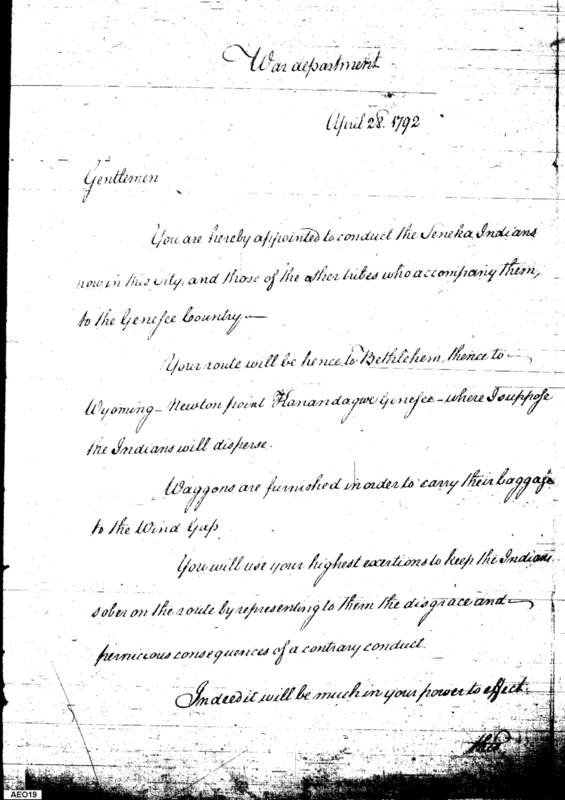 War department
April 28. 1792
Gentlemen
You are hereby appointed to conduct the Seneka Indians
now in this City, and those of the other tribes who accompany them,
to the Genesee Country—
Your route will be hence to Bethlehem, thence to—
Wyoming – Newton point Kanandagwe Genesee – where I suppose
the Indians will disperse.
Waggons are furnished in order to carry their baggage
to the Wind Gap
You will use your highest exertions to keep the Indians
sober on the route by representing to them the disgrace and—
pernicious consequences of a contrary conduct.
Indeed it will be much in your power to effect
this
AEO19